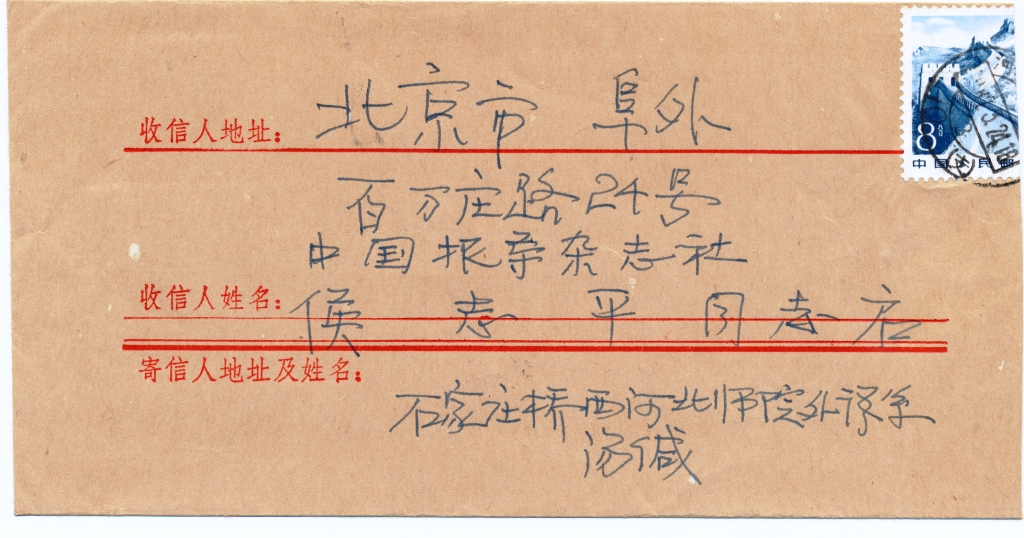 收信人地址: 北京市 阜外
百万庄路24号
中国报导杂志社
收信人姓名: 侯 志 平 同 志 启
寄信人地址及姓名:
石家庄桥西河北师院外语系
汤缄
8分
中国人民邮